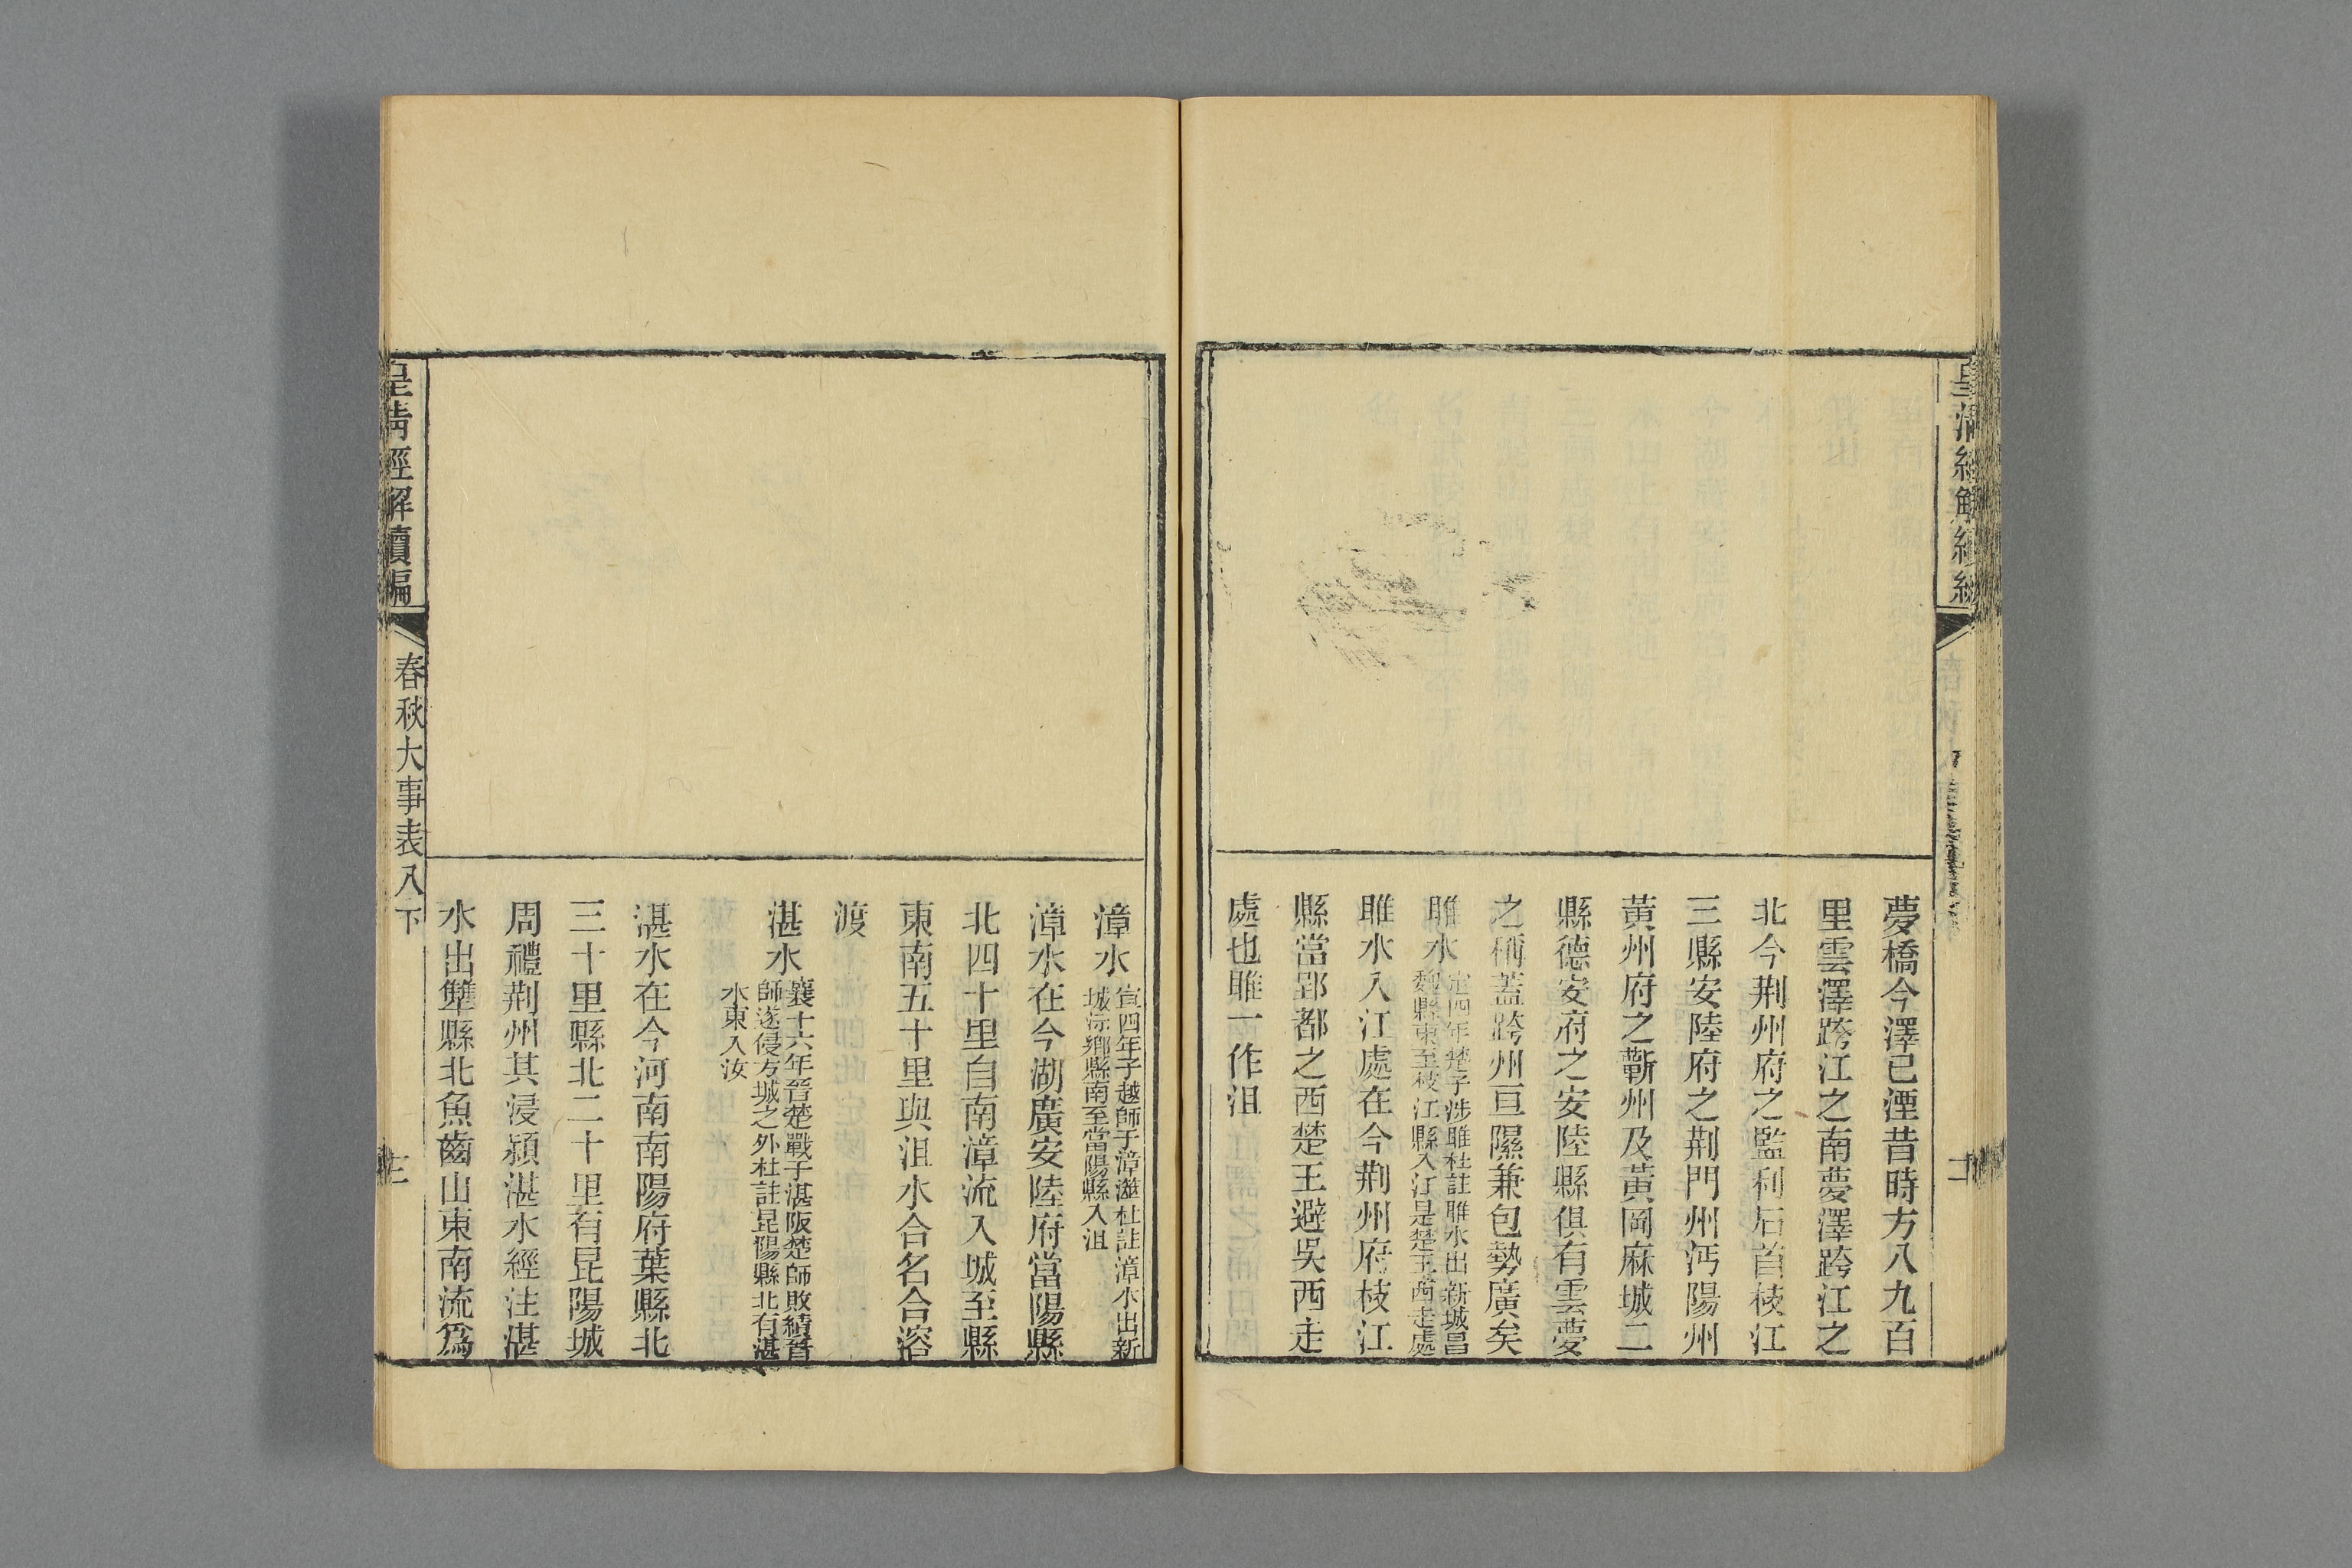 夢橋今澤已湮昔時方八九百
里雲澤跨江之南夢澤跨江之
北今荆州府之監利石首枝江
三縣安陸府之荆門州沔陽州
黄州府之蘄州及黃岡麻城二
縣德安府之安陸縣俱有雲夢
之稱蓋跨州亘隰兼包勢廣矣
雎水
定四年楚子涉雎杜註雎水出新城昌
魏縣東至枝江縣入江是楚王西走處
雎水入江處在今荆州府枝江
縣當郢都之西楚王避吳西走
處也雎一作沮
漳水
宣四年子越師于漳澨杜註漳水出新
城沶鄉縣南至當陽縣入沮
漳水在今湖廣安陸府當陽縣
北四十里自南漳流入城至縣
東南五十里與沮水合名合溶
渡
湛水
襄十六年晉楚戰于湛阪楚師敗績晉
師遂侵方城之外杜註昆陽縣北有湛
水東入汝
湛水在今河南南陽府葉縣北
三十里縣北二十里有昆陽城
周禮荆州其浸潁湛水經注湛
水出犨縣北魚齒山東南流爲
皇清經解續編
春秋大事表八下